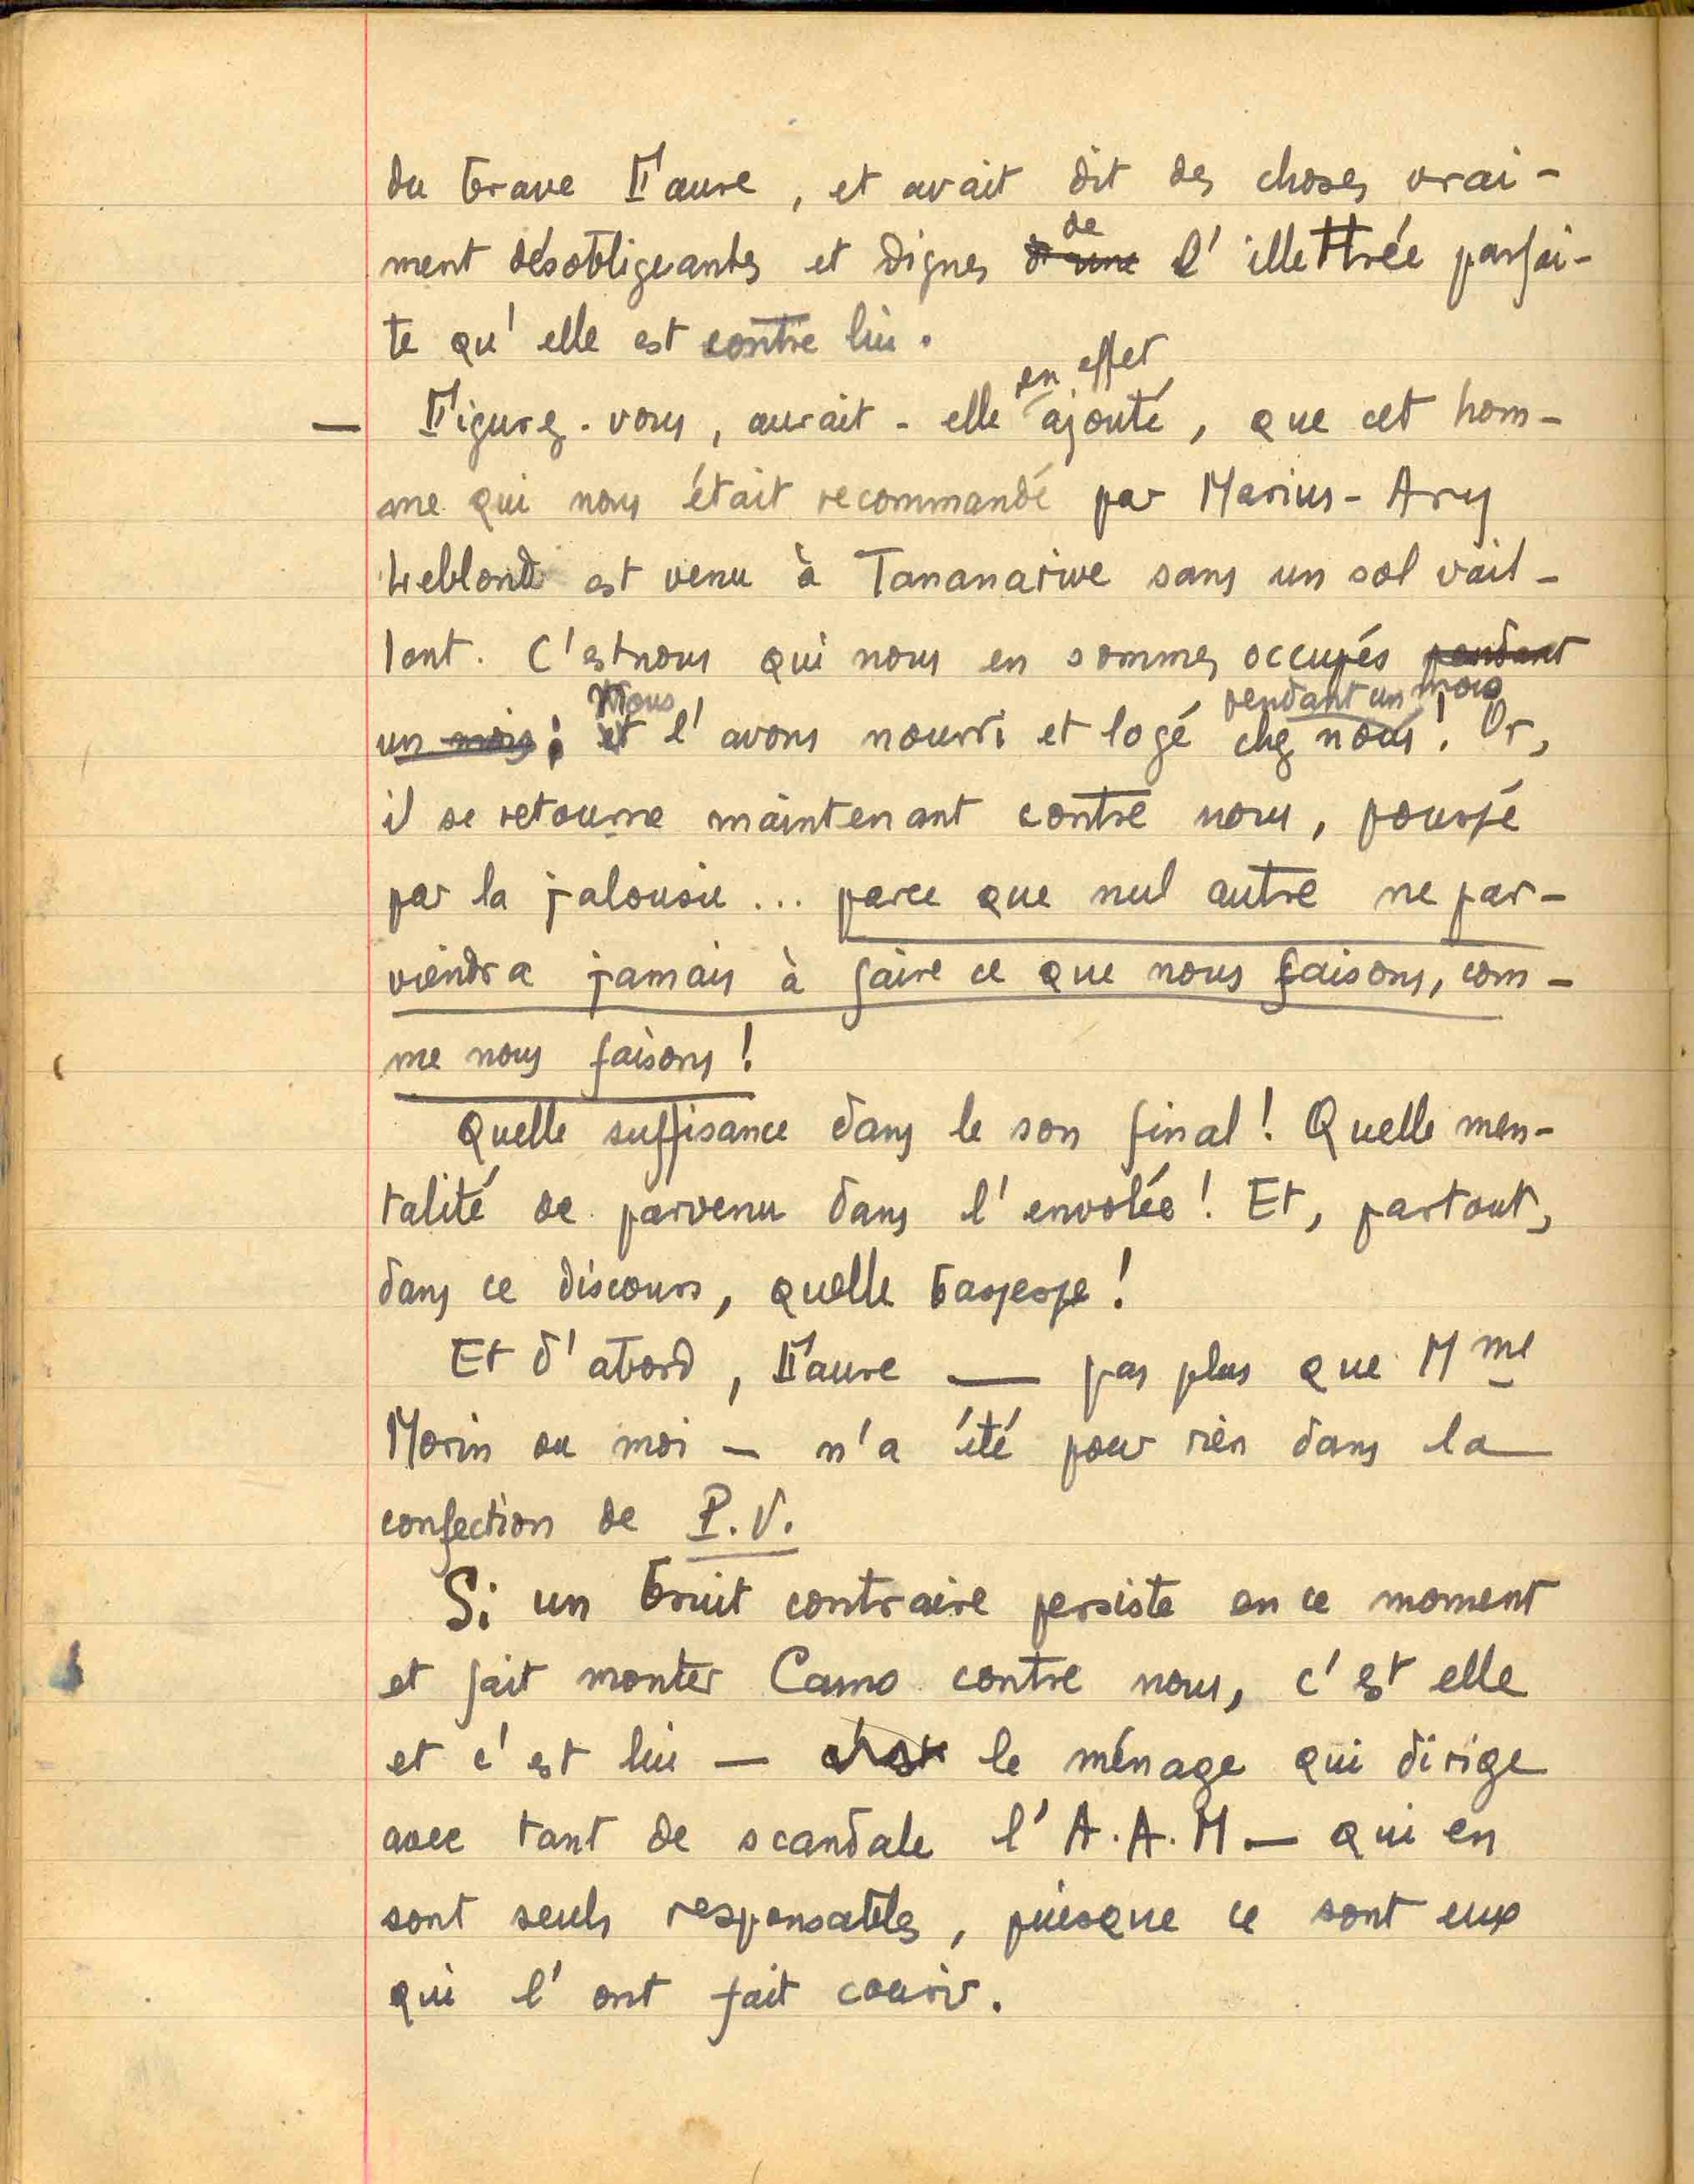 du brave Faure, et avait dit des choses vrai-
ment désobligeantes et dignes d'une de l'illettrée parfai-
te qu'elle est contre lui.
— Figurez-vous, aurait-elle en effet ajouté, que cet hom-
me qui nous était recommandé par Marius-Ary
Leblond est venu à Tananarive sans un sol vail-
lant. C'est nous qui nous en sommes occupés pendant
un mois : et Nous l'avons nourri et logé chez nous pendant un mois ! Or,
il se retourne maintenant contre nous, poussé
par la jalousie... parce que nul autre ne par-
viendra jamais à faire ce que nous faisons, com-
me nous faisons !
Quelle suffisance dans le son final ! Quelle men-
talité de parvenu dans l'envolée ! Et, partout,
dans ce discours, quelle bassesse !
Et d'abord, Faure — pas plus que Mme
Morin ou moi — n'a été pour rien dans la
confection de P.V.
Si un bruit contraire persiste en ce moment
et fait monter Camo contre nous, c'est elle
et c'est lui — c'est le ménage qui dirige
avec tant de scandale l'A.A.M — qui en
sont seuls responsables, puisque ce sont eux
qui l'ont fait courir.